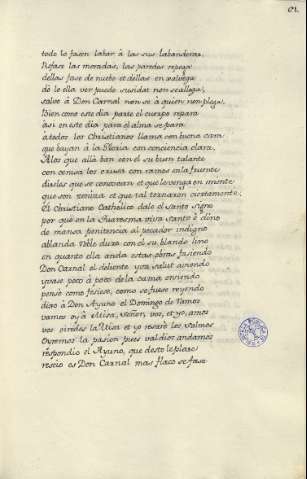 61.
todo lo fasen labar à las sus labanderas.
Refase las moradas, las paredes repega
dellas fase de nuebo et dellas en xalvega
dò le ella ver puede susidat non se allega,
salvo à Don Carnal non sè à quien non plega.
Bien como este dia para el cuerpo repara
asi en este dia para el alma se para
à todos los Christianos llama con buena cara
que bayan à la Iglesia con conciencia clara.
A los que allà ban con el su buen talante
con cenisa los crusa con ramos en la fuente
diseles que se conoscan et que le venga en miente
que son cenisa et que tal tornaran ciertamente.
El Christiano Catholico dale el Santo Signo
por que en la Quaresma viva Santo è dino
de mansa penitencia al pecador indigno
ablanda Roble duro con el su blando lino
en quanto ella anda estas obras fasiendo
Don Carnal el doliente yva salut aviendo
yvase poco à poco de la cama irguiendo
pensò como fesiese, como se fuese reyendo
dixo à Don Ayuno el Domingo de Ramos
vamos oyr à Misa, señor, vos, et yo, amos
vos oiredes la Misa et yo resarè los Salmos
Oyremos la pasion pues valdios andamos
respondio el Ayuno, que desto le plase
resio es Don Carnal mas flaco se fase